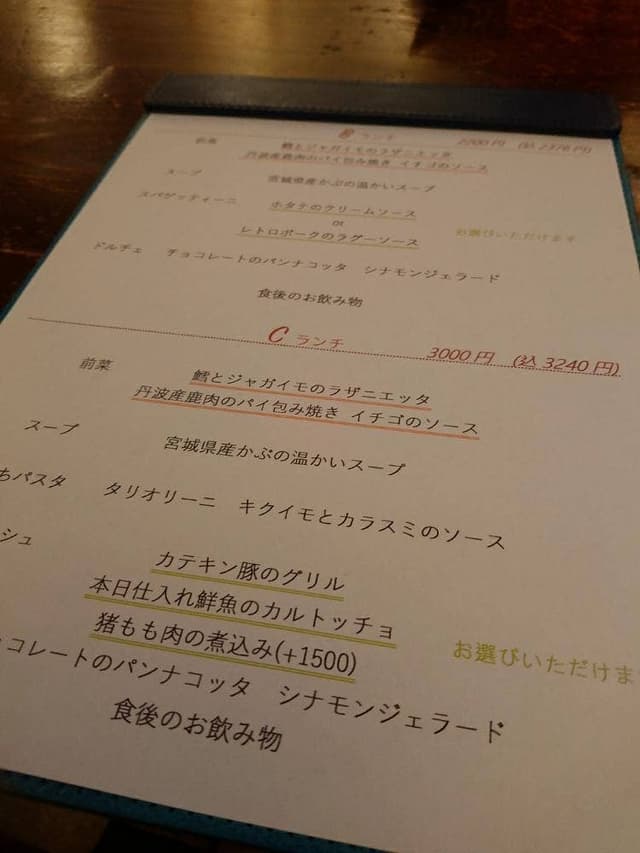 B ランチ 2200円 (込2376円)
前菜 鱈とジャガイモのラザニエッタ
丹波産鹿肉のパイ包み焼き イチゴのソース
スープ 宮城県産かぶの温かいスープ
スパゲッティーニ ホタテのクリームソース
or
レトロポークのラグーソース お選びいただけます
ドルチェ チョコレートのパンナコッタ シナモンジェラード
食後のお飲み物
C ランチ 3000円 (込3240円)
前菜 鱈とジャガイモのラザニエッタ
丹波産鹿肉のパイ包み焼き イチゴのソース
スープ 宮城県産かぶの温かいスープ
ちパスタ タリオリーニ キクイモとカラスミのソース
シュ カテキン豚のグリル
本日仕入れ鮮魚のカルトッチョ
猪もも肉の煮込み(+1500) お選びいただけま
コレートのパンナコッタ シナモンジェラード
食後のお飲み物